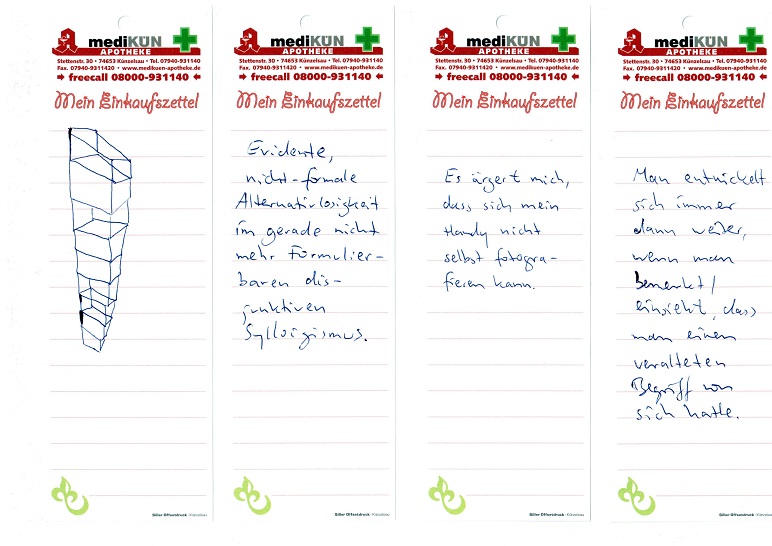 mediKÜN
APOTHEKE
Stettenstr. 30 • 74653 Künzelsau • Tel. 07940-931140
Fax. 07940-9311420 • www.medikuen-apotheke.de
freecall 08000-931140
Mein Einkaufszettel
Siller Offsetdruck · Künzelsau
mediKÜN
APOTHEKE
Stettenstr. 30 • 74653 Künzelsau • Tel. 07940-931140
Fax. 07940-9311420 • www.medikuen-apotheke.de
freecall 08000-931140
Mein Einkaufszettel
Evidente,
nicht-formale
Alternativlosigkeit
im gerade nicht
mehr Formulier-
baren dis-
junktiven
Syllogismus.
Siller Offsetdruck · Künzelsau
mediKÜN
APOTHEKE
Stettenstr. 30 • 74653 Künzelsau • Tel. 07940-931140
Fax. 07940-9311420 • www.medikuen-apotheke.de
freecall 08000-931140
Mein Einkaufszettel
Es ärgert mich,
dass sich mein
Handy nicht
selbst fotogra-
fieren kann.
Siller Offsetdruck · Künzelsau
mediKÜN
APOTHEKE
Stettenstr. 30 • 74653 Künzelsau • Tel. 07940-931140
Fax. 07940-9311420 • www.medikuen-apotheke.de
freecall 08000-931140
Mein Einkaufszettel
Man entwickelt
sich immer
dann weiter,
wenn man
bemerkt/
einsieht, dass
man einen
veralteten
Begriff von
sich hatte.
Siller Offsetdruck · Künzelsau